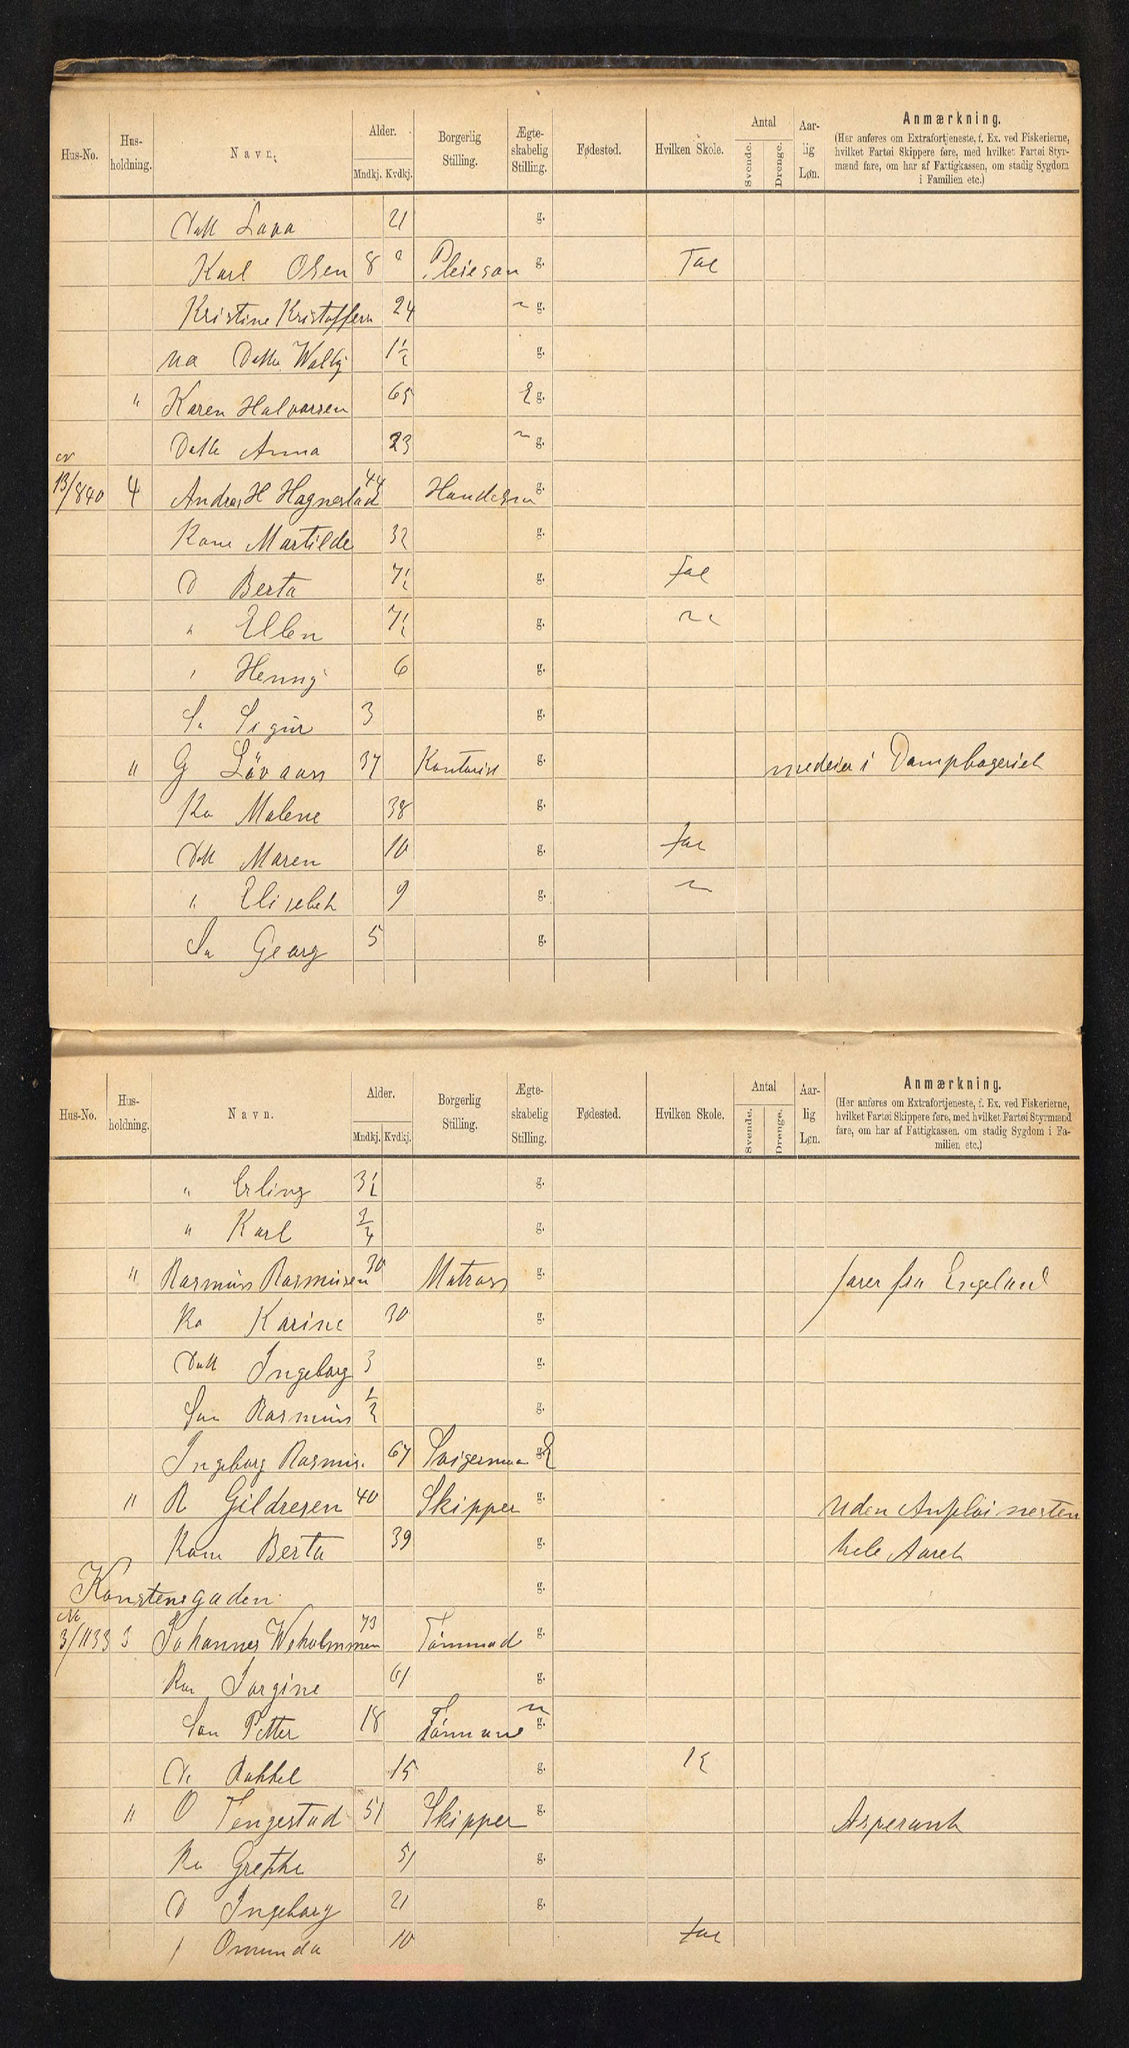 Hus-No. Hus-holdning. Navn. Alder. Mndkj. Kvdkj. Borgerlig Stilling. Ægte-skabelig Stilling. Fødested. Hvilken Skole. Antal Svende. Drenge. Aar-lig Løn. Anmærkning.
(Her anføres om Extrafortjeneste, f. Ex. ved Fiskerierne, hvilket Fartøi Skippere føre, med hvilket Fartøi Styr-mænd fare, om har af Fattigkassen, om stadig Sygdom i Familien etc.)
Datt 21 g.
Karl Olsen 8 Pleieson g. Fal
Kristine Kristoffern 24 ~ g.
na Datte Walby 1½ g.
" Karen Halvorsen 65 E g.
Datte Anna 23 ~ g.
13/840 4 Andreas H Hagnestad 44 g.
Kone Martilde 32 g.
D Berta 7½ g. Fal
" Ellen 7½ g. ~
" Henny 6 g.
Sø Sigur 3 g.
" G Lövaas 37 Kontorist g. medeier i Dampbageriet
Ko Malene 38 g.
Datt Maren 10 g. Fal
" Elisebet 9 g. ~
Sø Georg 5 g.
Hus-No. Hus-holdning. Navn. Alder. Mndkj. Kvdkj. Borgerlig Stilling. Ægte-skabelig Stilling. Fødested. Hvilken Skole. Antal Svende. Drenge. Aar-lig Løn. Anmærkning.
(Her anføres om Extrafortjeneste, f. Ex. ved Fiskerierne, hvilket Fartøi Skippere føre, med hvilket Fartøi Styrmænd fare, om har af Fattigkassen, om stadig Sygdom i Fa-milien etc.)
" Erling 3½ g.
" Karl ¾ g.
" Rasmus Rasmusen 30 Matros g. farer fra Engeland
Ko Karine 30 g.
Datt Ingeborg 3 g.
Søn Rasmus ½ g.
Ingeborg Rasmus. 67 Svigermor g. E
" R Gildresen 40 Skipper g. uden Anploi nesten
Kone Berta 39 g. hele Aaret
Konstensgaden g.
3/1133 3 Johannes 73 g.
Kon Jorgine 61 g.
Søn Petter 18 Tömmand ~ g.
Da Rakkel 15 g.
" O Tengestad 51 Skipper g. Asperant
Ko Grethe 51 g.
D Ingeborg 21 g.
" Omunda 10 Fal